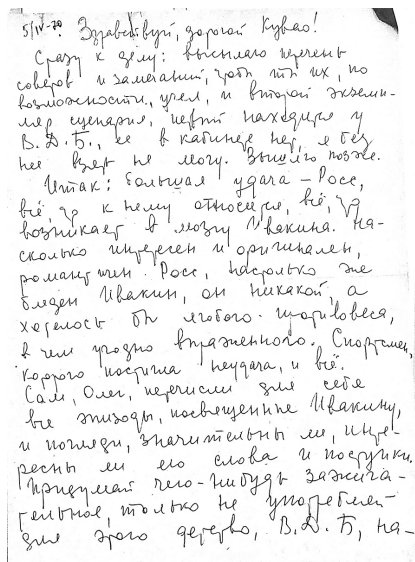 5/IV-70. Здравствуй, дорогой Куваю!
Сразу к делу: высылаю перечень
советов и замечаний, чтоб ты их, по
возможности, учел, и второй экзем-
пляр сценария, первый находится у
В.Д.Б., ее в кабинете нет, я без
нее взять не могу. Вышлю позже.
Итак: большая удача – Росс,
всё, что к нему относится, всё, что
возникает в мозгу Ивакина. На-
сколько интересен и оригинален,
романтичен Росс, настолько же
бледен Ивакин, он никакой, а
хотелось бы любого противовеса,
в чем угодно выраженного. Спортсмен,
которого постигла неудача, и всё.
Сам, Олег, перечисли для себя
все эпизоды, посвященные Ивакину,
и погляди, значительны ли, инте-
ресны ли его слова и поступки.
Придумай чего-нибудь зажига-
тельное, только не употребляй
для этого детство, В.Д.Б, на-